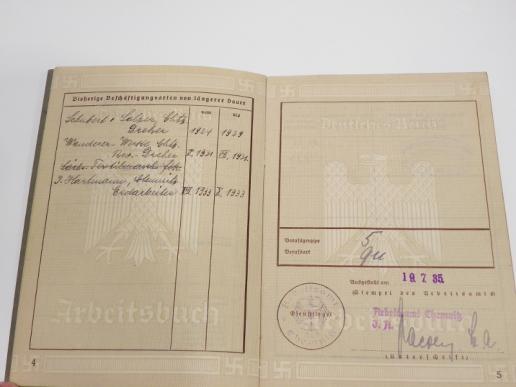 Bisherige Beschäftigungsarten von längerer Dauer
von
bis
Schubert & Salzer, Chtz.
Dreher
1924
1929
Wanderer-Werke Chtz.
Dreher
1931
Sächs.
J. Hartmann, Chemnitz
Erdarbeiter
VII 1933
X 1933
Arbeitsbuch
4
Deutsches Reich
Berufsgruppe
5
Berufsart
Ausgestellt am
19. 7. 35
Stempel des Arbeitsamts
Arbeitsamt
Chemnitz
Dienstsiegel
Arbeitsamt Chemnitz
J. A.
Arbeitsbuch
(Unterschrift)
5